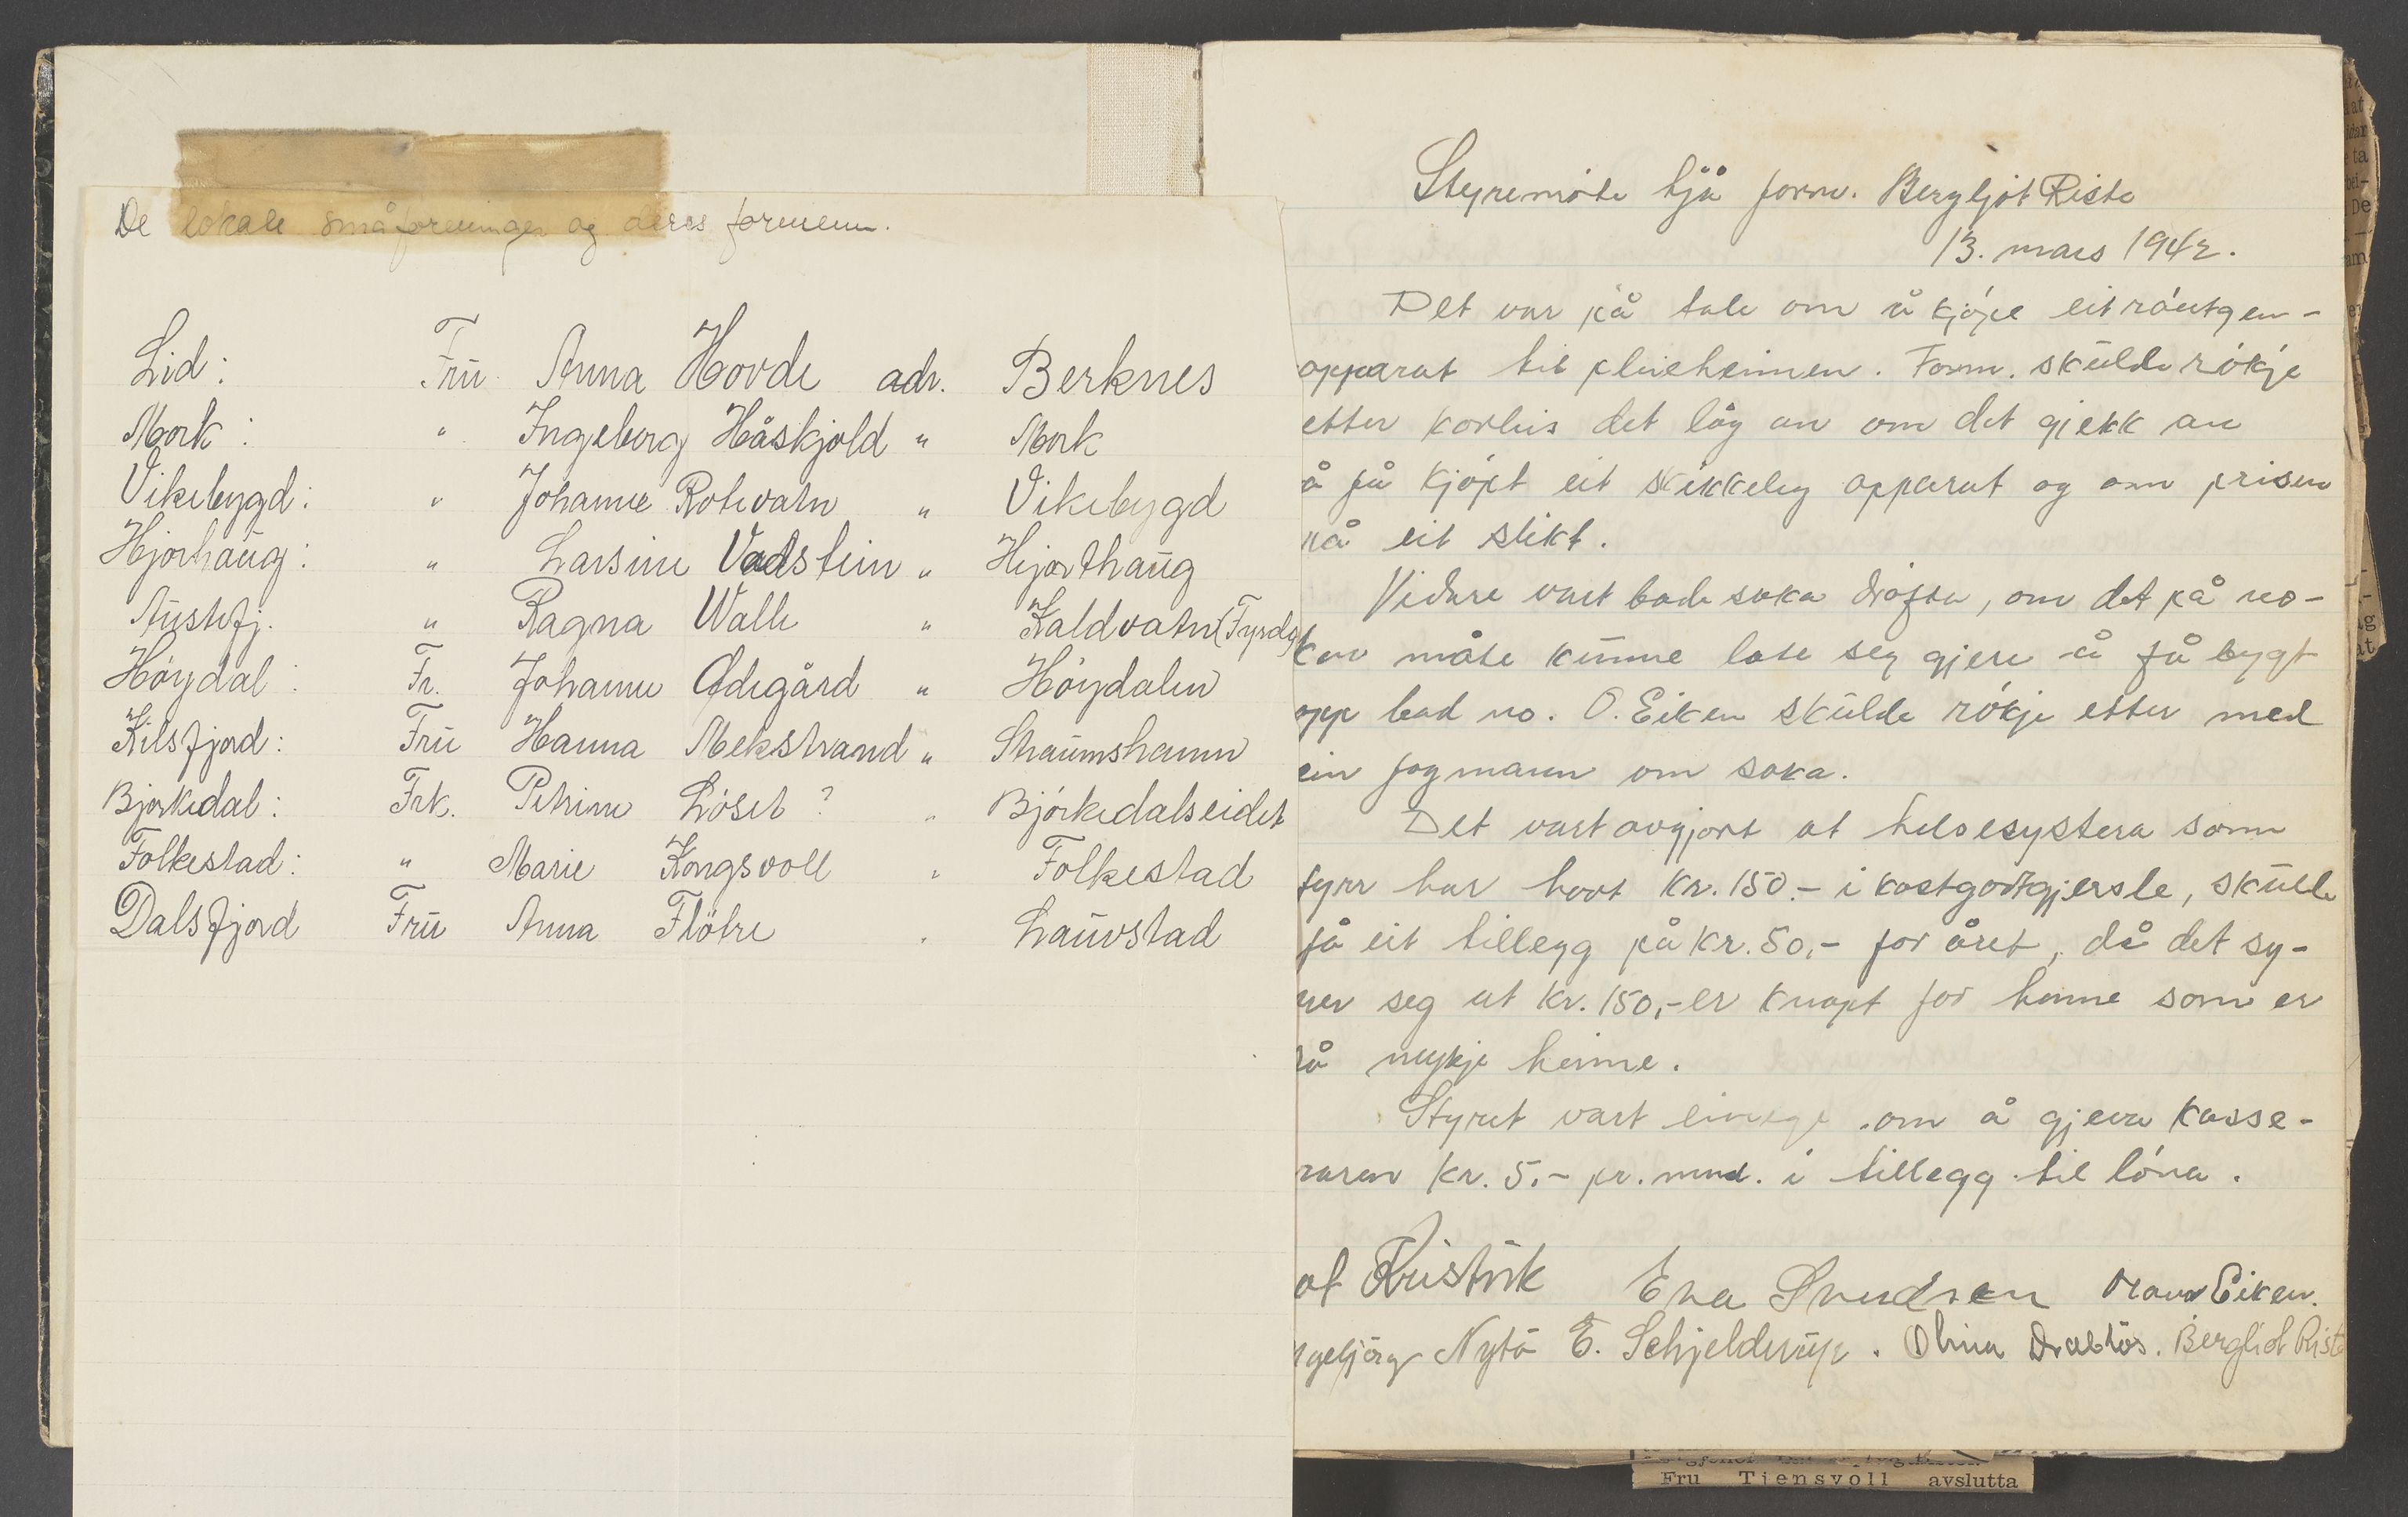 De lokale småforeninger og deres formenn.
Lid: Fru Anna Hovde adr. Berknes
Mork: " Ingeborg Håskjold " Mork
Vikebygd: " Johanne Rotevatn " Vikebygd
Hjorhaug: " Larsine Vadstein " Hjorthaug
Austefj. " Ragna Walle " Kaldvatn (Fyrde)
Höydal: Fr. Johanne Ødegård " Höydalen
Kilsfjord: Fru Hanna Mekstrand " Straumshamn
Bjorkedal: Frk. Petrine Löset ? " Björkedalseidet
Folkestad: " Marie Kongsvoll " Folkestad
Dalsfjord Fru Anna Flötre " Lauvstad
Styremöte hjå form. Bergljot Riste
13. mars 1942.
Det var på tale om å kjöpe eit röntgen-
apparat til pleieheimen. Form. skulde rökje
etter korleis det låg an om det gjekk an
å få kjöpt eit skikkeleg apparat og om prisen
på eit slikt.
Vidare vart bade saka dröfta, om det på no-
ken måte kunne late seg gjere å få bygt
opp bad no. O. Eiken skulde rökje etter med
ein fagmann om saka.
Det vart avgjort at helsesystera som
fyrr har havt kr. 150.- i kostgodtgjersle, skulde
få eit tillegg på kr. 50,- for året, då det sy-
ner seg at kr. 150,- er knapt for henne som er
så mykje heime.
Styret vart einige om å gjeva kasse-
raren kr. 5.- pr. mnd. i tillegg til löna.
at Kristvik Eva Svendsen Olav Eiken.
ngebjörg Nytö E. Schjelderup. Olina Drabløs. Bergliot Riste
Fru Tjensvoll avslutta